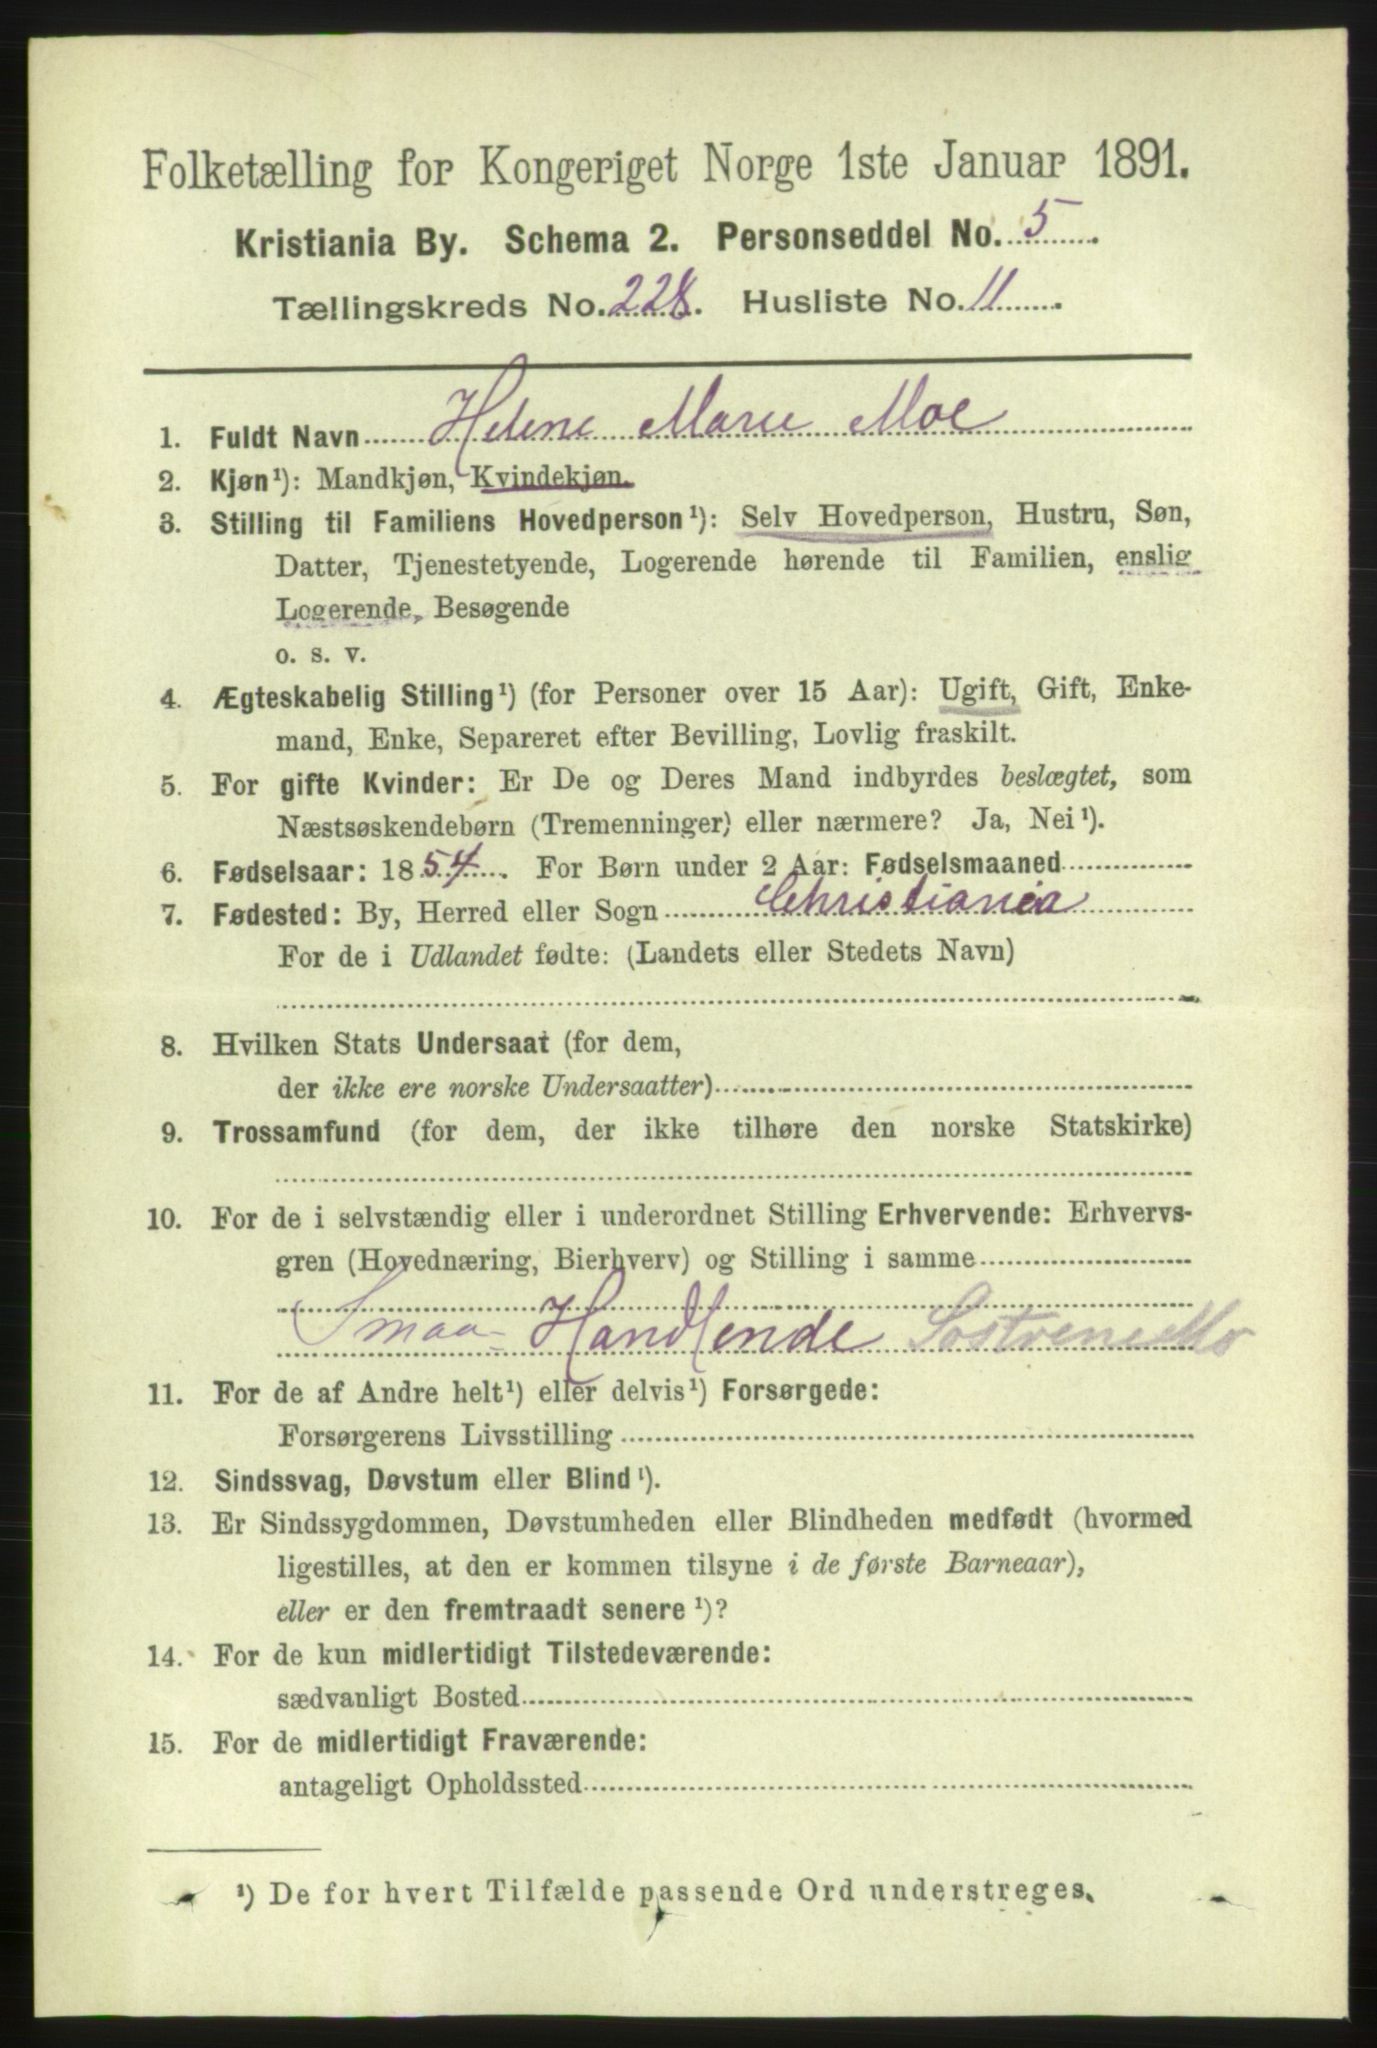 Folketælling for Kongeriget Norge 1ste Januar 1891.
Kristiania By. Schema 2. Personseddel No. 5
Tællingskreds No. 228. Husliste No. 11
1. Fuldt Navn Helene Marie Moe
2. Kjøn¹): Mandkjøn, Kvindekjøn.
3. Stilling til Familiens Hovedperson¹): Selv Hovedperson, Hustru, Søn,
Datter, Tjenestetyende, Logerende hørende til Familien, enslig
Logerende, Besøgende
o. s. v.
4. Ægteskabelig Stilling¹) (for Personer over 15 Aar): Ugift, Gift, Enke-
mand, Enke, Separeret efter Bevilling, Lovlig fraskilt.
5. For gifte Kvinder: Er De og Deres Mand indbyrdes beslægtet, som
Næstsøskendebørn (Tremenninger) eller nærmere? Ja, Nei¹).
6. Fødselsaar: 1854. For Børn under 2 Aar: Fødselsmaaned
7. Fødested: By, Herred eller Sogn Christiania
For de i Udlandet fødte: (Landets eller Stedets Navn)
8. Hvilken Stats Undersaat (for dem,
der ikke ere norske Undersaatter)
9. Trossamfund (for dem, der ikke tilhøre den norske Statskirke)
10. For de i selvstændig eller i underordnet Stilling Erhvervende: Erhvervs-
gren (Hovednæring, Bierhverv) og Stilling i samme
Smaa-Handlende Søstrene Mo
11. For de af Andre helt¹) eller delvis¹) Forsørgede:
Forsørgerens Livsstilling
12. Sindssvag, Døvstum eller Blind¹).
13. Er Sindssygdommen, Døvstumheden eller Blindheden medfødt (hvormed
ligestilles, at den er kommen tilsyne i de første Barneaar),
eller er den fremtraadt senere¹)?
14. For de kun midlertidigt Tilstedeværende:
sædvanligt Bosted
15. For de midlertidigt Fraværende:
antageligt Opholdssted
¹) De for hvert Tilfælde passende Ord understreges.